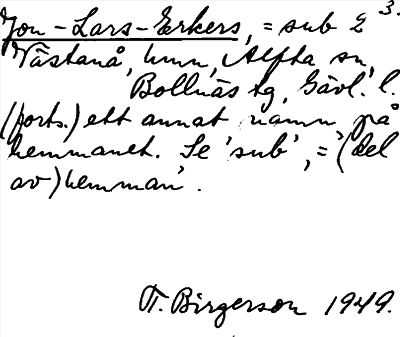 Jon-Lars-Erkers, = sub 2 3.
Västanå, hmn, Alfta sn,
Bollnäs tg, Gävl. l.
(forts.) ett annat namn på
hemmanet. Se 'sub', = '(del
av) hemman'.
T. Birgerson 1949.